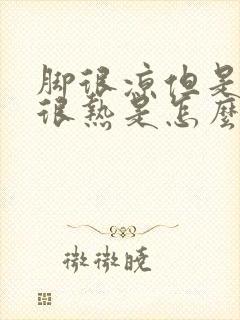 脚很凉但是
很热是怎麼
微微曉